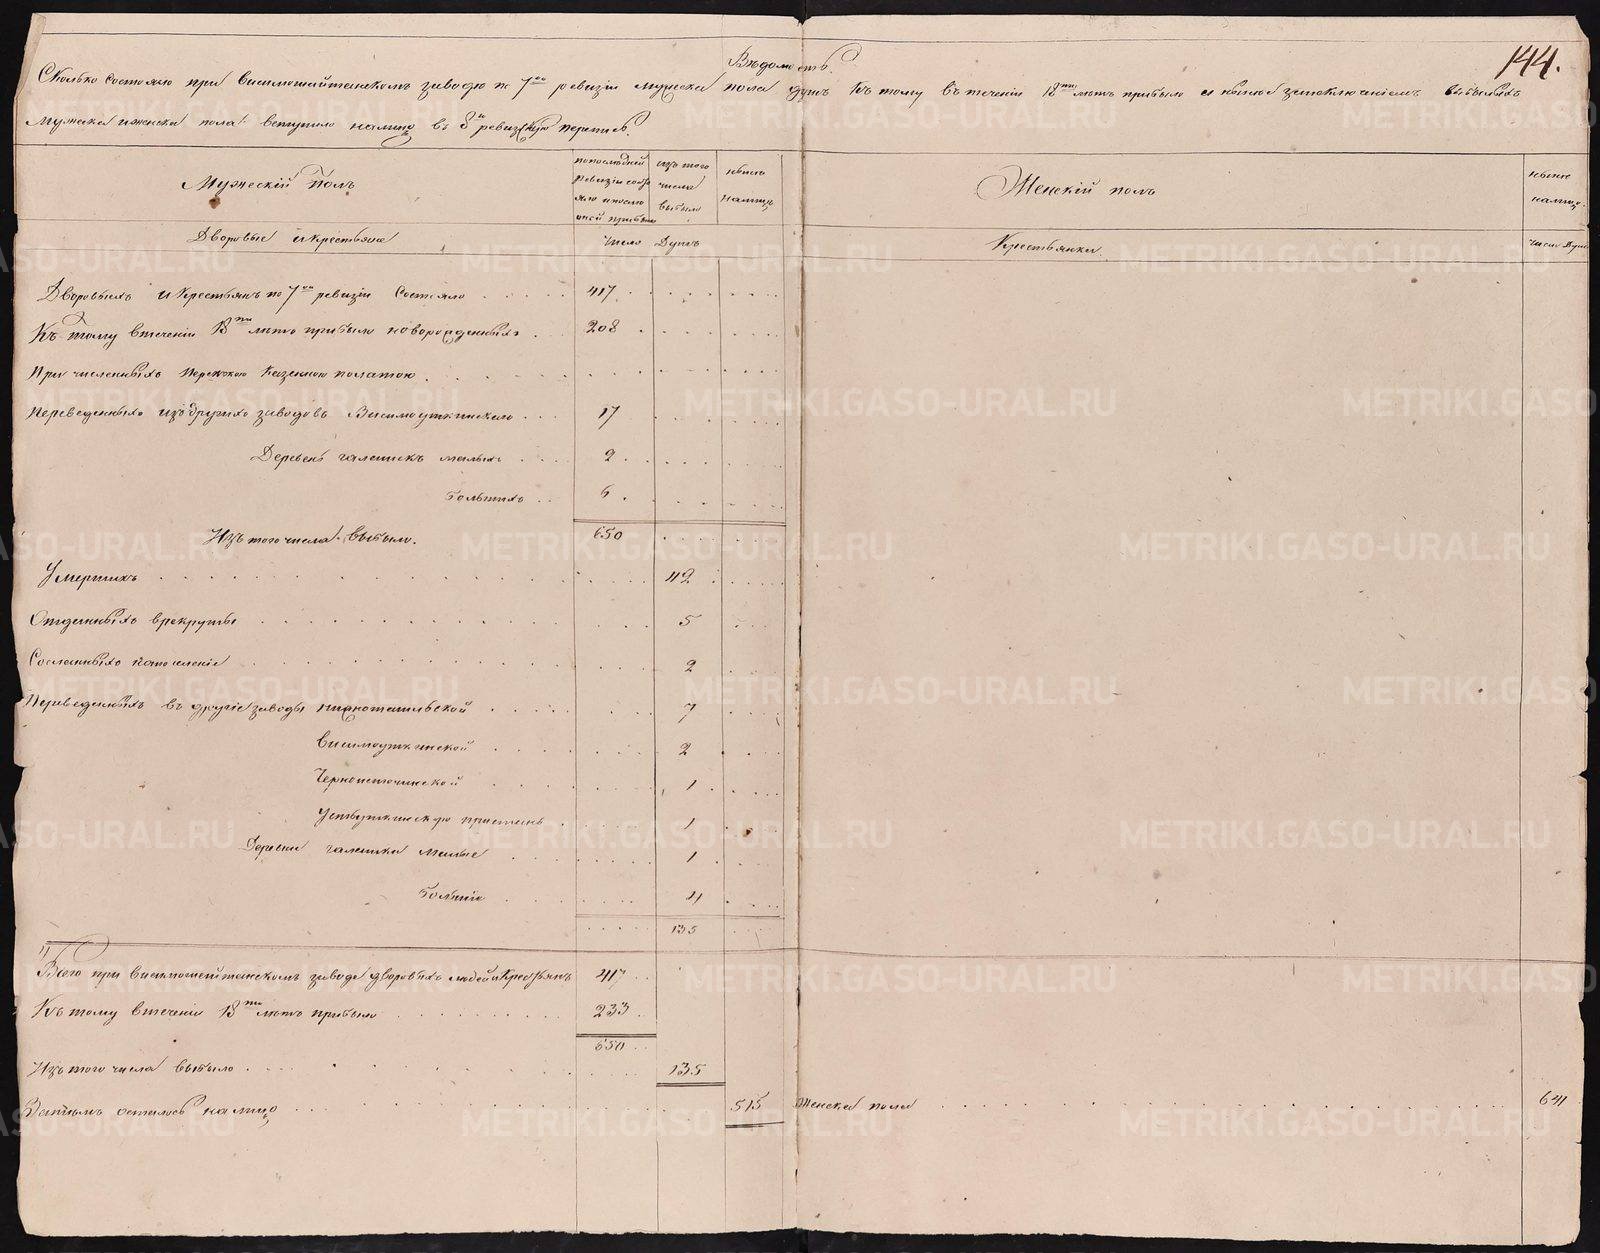 144.
Вѣдомость.
Сколько состояло при Висимошайтанскомъ заводѣ по 7ой ревизіи мужеска пола душъ къ тому въ теченіи 18ти лѣтъ прибыло и нынѣ за исключеніемъ выбылыхъ
мужеска и женска пола вступило на лицо въ 8ю ревизскую перепись.
Мужескій Полъ
по последней ревизіи состояло и после оной прибыло
изъ того числа выбыло
нынѣ на лицо
Женскій полъ
нынѣ на лицо.
Дворовые и Крестьяне
Число Душъ
Крестьянки.
Число Душъ
Дворовыхъ и Крестьянъ по 7ой ревизіи Состояло 417
Къ тому в теченіи 18ти лѣтъ прибыло новорожденныхъ 208
Причисленныхъ Пермскою Казенною полатою
Переведенныхъ изъ другихъ заводовъ Висимоуткинскаго 17
Деревень галашекъ малыхъ 2
большихъ 6
Изъ того числа выбыло. 650
Умершихъ 112
Отданныхъ в рекруты 5
Сосланныхъ на поселеніе 2
Переведенныхъ въ другіе заводы нижнотагильской 7
висимоуткинской 2
Черноисточинской 1
Устьуткинскую пристань 1
Деревни галашки Малые 1
Большіе 4
135
Всего при висимошайтанскомъ заводе дворовыхъ людей и Крестьянъ 417
Къ тому в теченіи 18ти лѣтъ прибыло 233
650
Изъ того числа выбыло 135
Затѣмъ осталось на лицо 515 Женска пола 641
METRIKI.GASO-URAL.RU